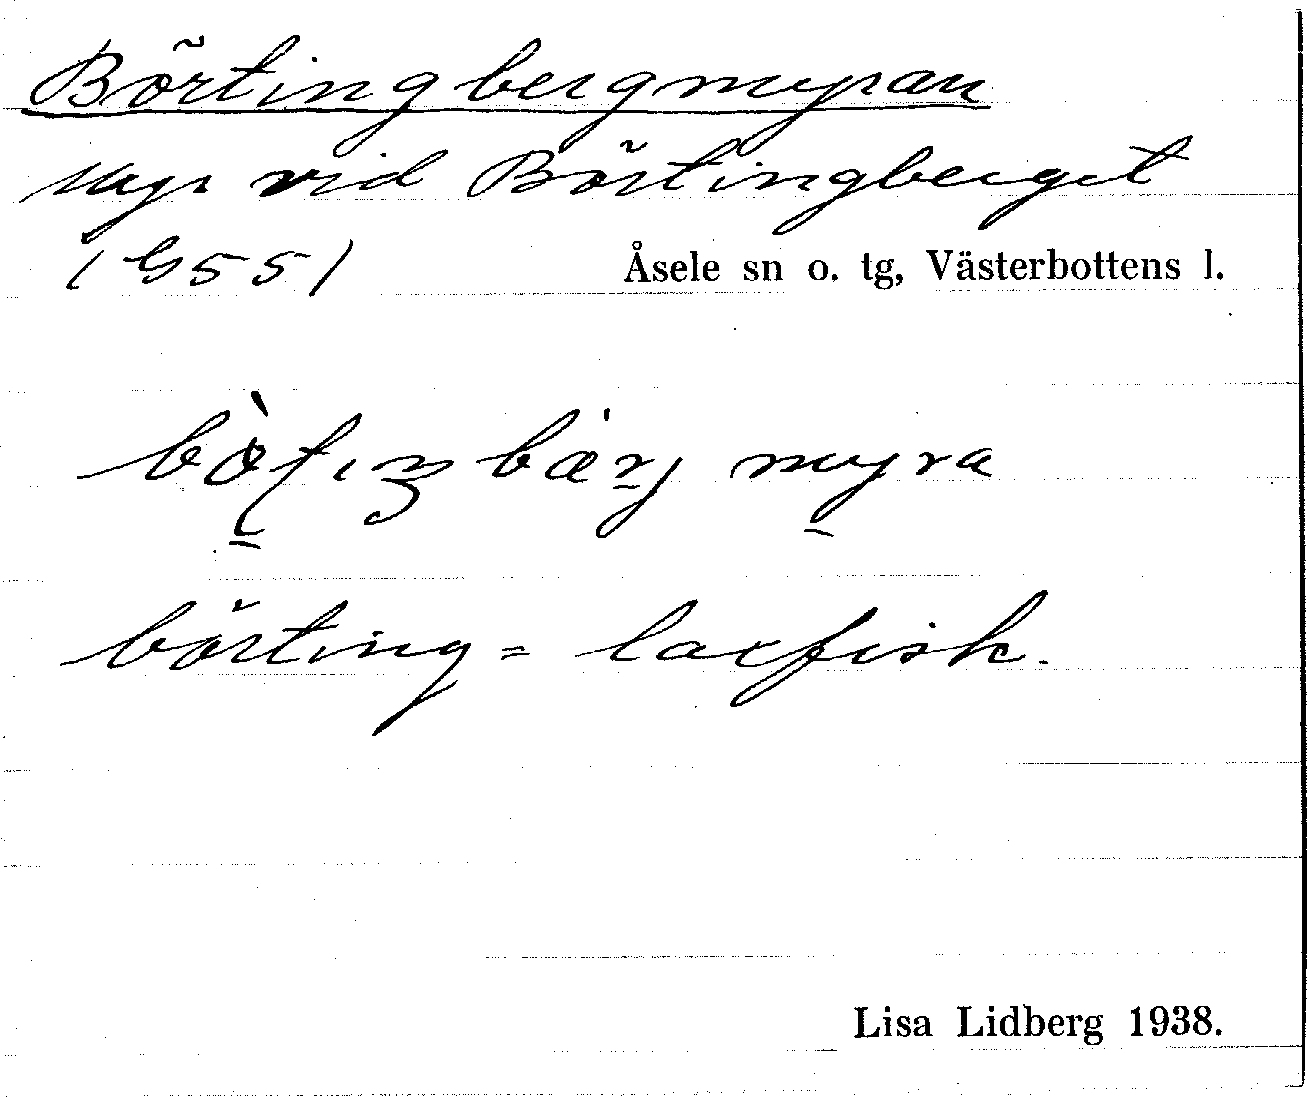 Börtingbergmyran
myr vid Börtingberget
(G55) Åsele sn o. tg, Västerbottens l.
börting = laxfisk.
Lisa Lidberg 1938.